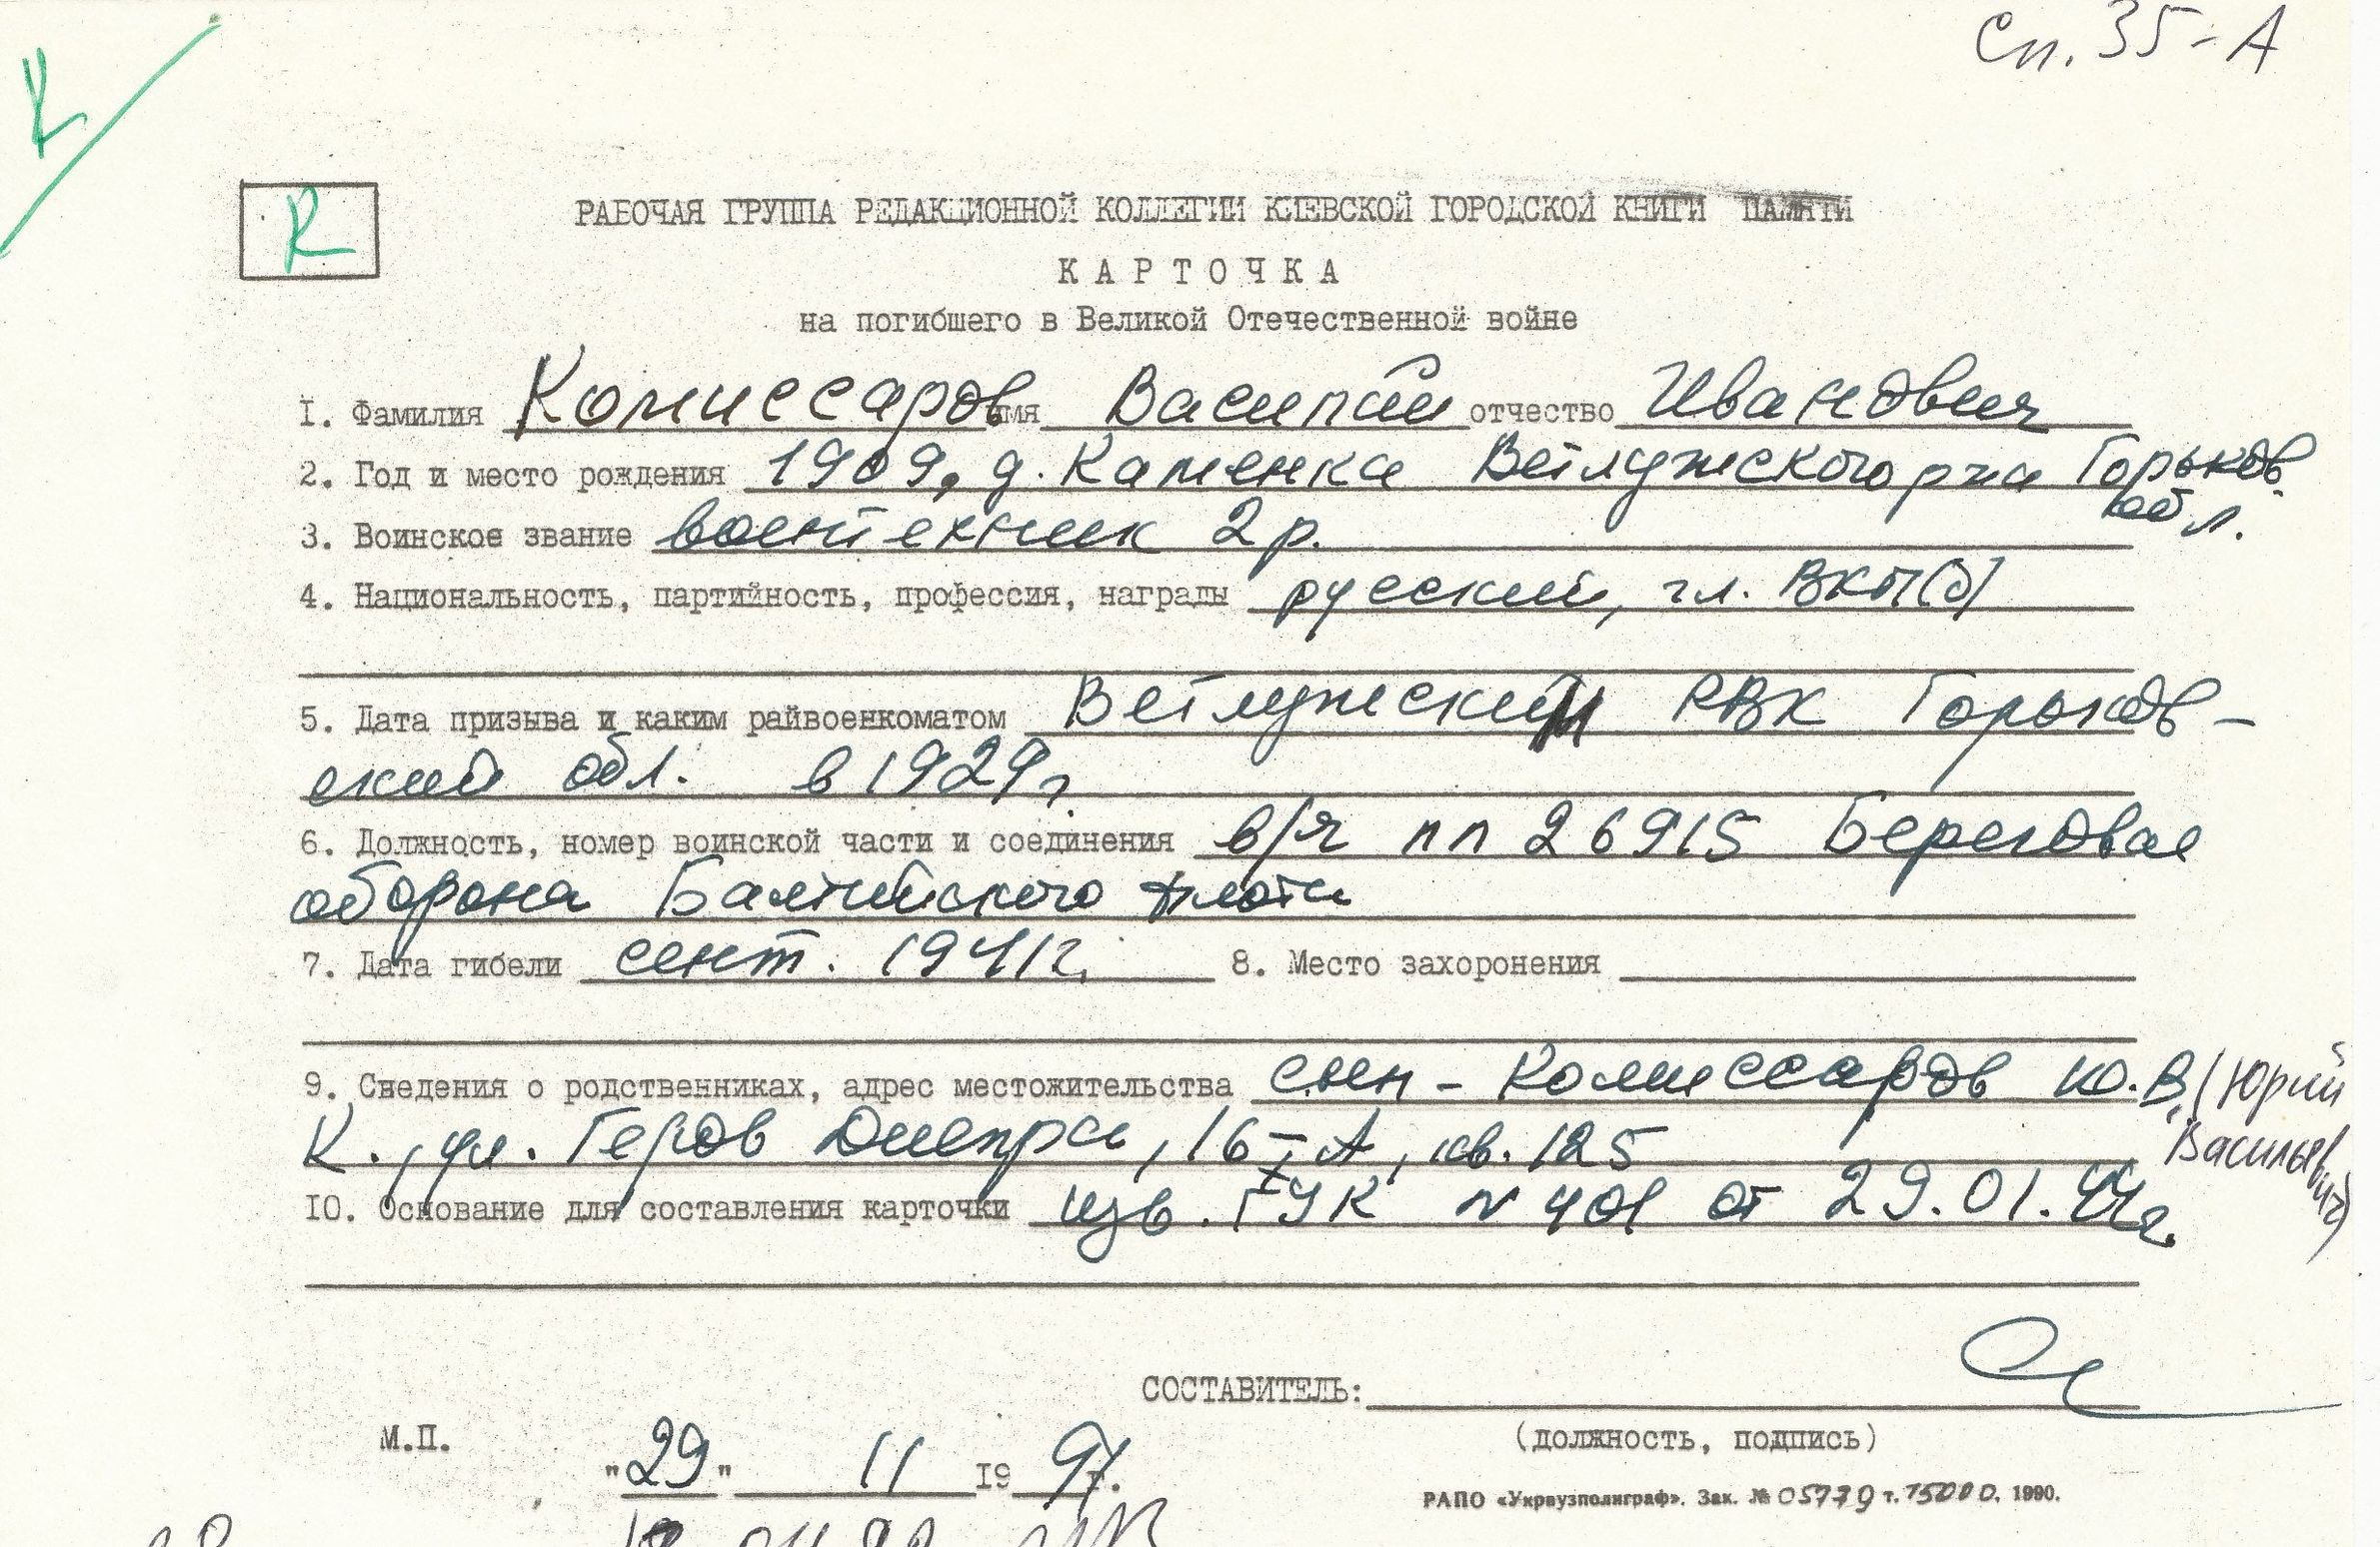 Сп. 35-А
К
К
РАБОЧАЯ ГРУППА РЕДАКЦИОННОЙ КОЛЛЕГИИ КИЕВСКОЙ ГОРОДСКОЙ КНИГИ ПАМЯТИ
КАРТОЧКА
на погибшего в Великой Отечественной войне
1. Фамилия Комиссаров имя Василий отчество Иванович
2. Год и место рождения 1909, д. Каменка Ветлужского р-на Горьков. обл.
3. Воинское звание воентехник 2 р.
4. Национальность, партийность, профессия, награды русский, чл. ВКП(б)
5. Дата призыва и каким райвоенкоматом Ветлужский РВК Горьков-
ский обл. в 1929 г.
6. Должность, номер воинской части и соединения в/ч пп 26915 Береговая
оборона Балтийского флота
7. Дата гибели сент. 1941г. 8. Место захоронения
9. Сведения о родственниках, адрес местожительства сын - Комиссаров Ю.В. (Юрий Васильевич)
К., ул. Геров Днепра, 16-А, кв. 125
10. Основание для составления карточки изв. ГУК № 401 от 29.01.44г.
СОСТАВИТЕЛЬ:
М.П.
(должность, подпись)
"29" 11 1991 г.
РАПО «Укрвузполиграф». Зак. № 05779 т. 15000. 1990.